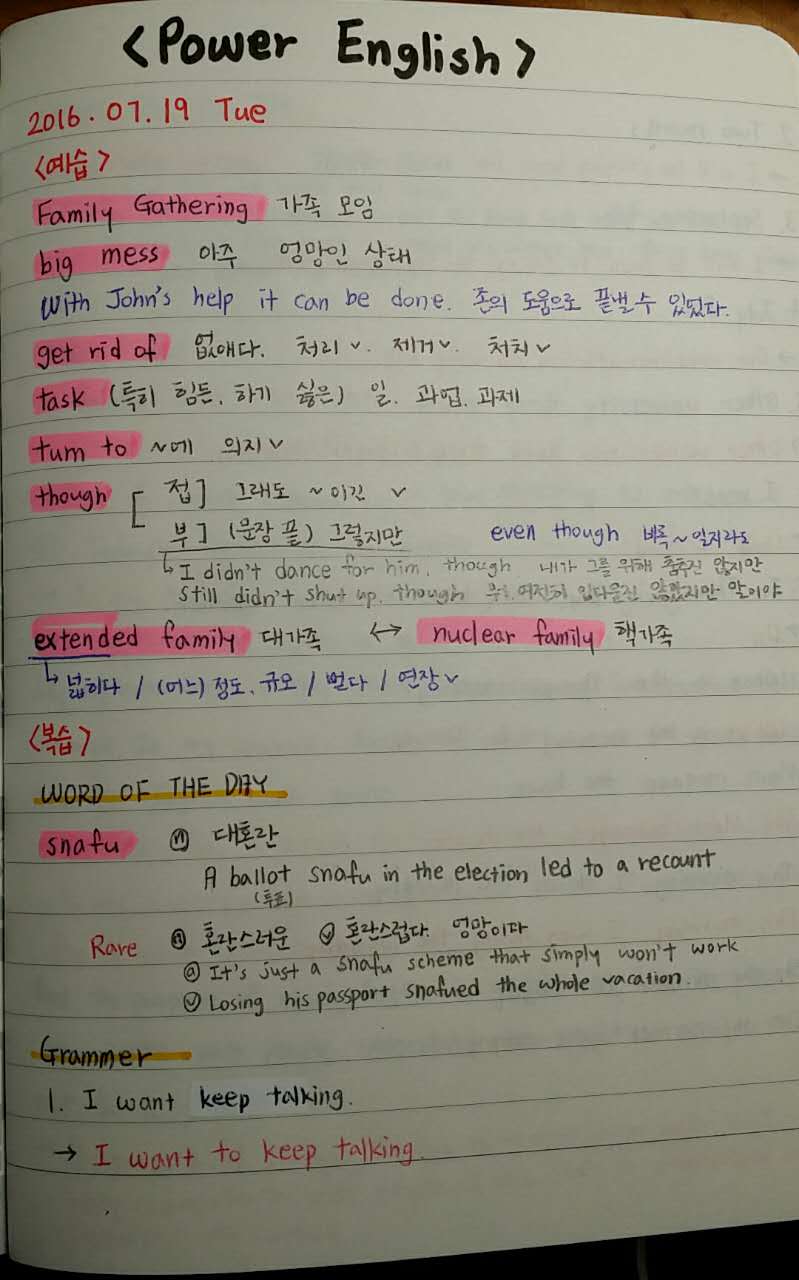 <Power English>
2016.07.19 Tue
<예습>
Family Gathering 가족 모임
big mess 아주 엉망인 상태
With John's help it can be done. 존의 도움으로 끝낼 수 있었다.
get rid of 없애다. 처리v. 제거v. 처치v
task (특히 힘든, 하기 싫은) 일. 과업. 과제
turn to ~에 의지v
though [ 접] 그래도 ~이긴 v
부] (문장 끝) 그렇지만 even though 비록~일지라도
↳ I didn't dance for him, though 내가 그를 위해 춤추진 않지만
still didn't shut up, though 뭐, 여전히 입다물진 않았지만 말이야
extended family 대가족 ↔ nuclear family 핵가족
↳ 넓히다 / (어느) 정도, 규모 / 뻗다 / 연장v
<복습>
WORD OF THE DAY
snafu ⓝ 대혼란
A ballot snafu in the election led to a recount
(투표)
Rare ⓐ 혼란스러운 ⓥ 혼란스럽다. 엉망이다
ⓐ It's just a snafu scheme that simply won't work
ⓥ Losing his passport snafued the whole vacation.
Grammer
1. I want keep talking.
→ I want to keep talking.